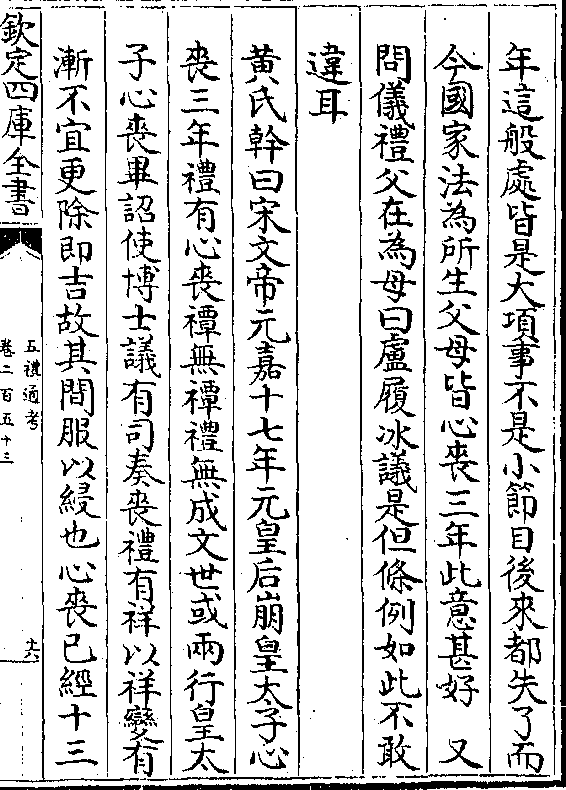 年這般處皆是大項事不是小節目後來都失了而
今國家法為所生父母皆心喪三年此意甚好　又
問儀禮父在為母曰盧履冰議是但條例如此不敢
違耳
黄氏幹曰宋文帝元嘉十七年元皇后崩皇太子心
喪三年禮有心喪禫無禫禮無成文世或兩行皇太
子心喪畢詔使博士議有司奏喪禮有祥以祥變有
漸不宜更除即吉故其間服以綅也心喪已經十三
欽定四庫全書
五禮通考
卷二百五十三
十六